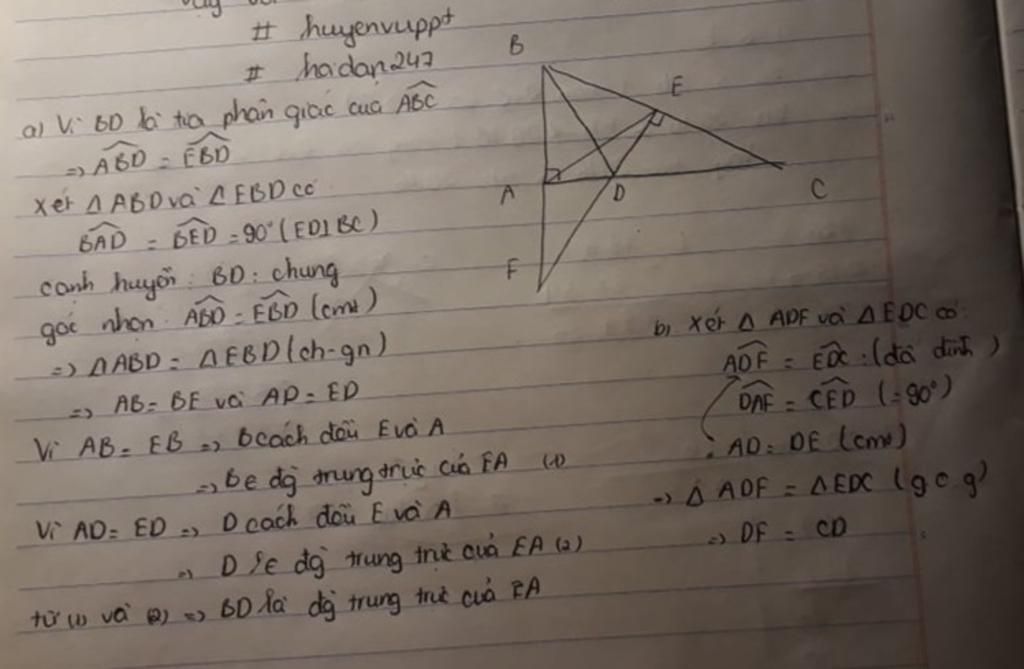 # huyenvuppt
# hadan247
B
E
A
D
C
F
a) Vì BD là tia phân giác của ABC
=> ABD = EBD
xét Δ ABD và Δ EBD có
BAD = BED = 90° (ED⊥BC)
cạnh huyền : BD : chung
góc nhọn : ABD = EBD (cmt)
=> ΔABD = ΔEBD (ch-gn)
=> AB = BE và AD = ED
Vì AB = EB => B cách đều E và A
=> B ∈ đg trung trực của EA (1)
Vì AD = ED => D cách đều E và A
=> D ∈ đg trung trực của EA (2)
từ (1) và (2) => BD là đg trung trực của EA
b) xét Δ ADF và Δ EDC có:
ADF = EDC : (đđ đỉnh)
DAF = CED (=90°)
AD = DE (cmt)
=> Δ ADF = ΔEDC (g c g)
=> DF = CD